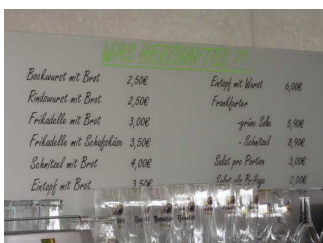 WAS HERZHAFTES ??
Bockwurst mit Brot 2,50€
Rindswurst mit Brot 2,50€
Frikadelle mit Brot 3,00€
Frikadelle mit Schafskäse 3,50€
Schnitzel mit Brot 4,00€
Eintopf mit Brot 3,50€
Eintopf mit Wurst 6,00€
Frankfurter
-grüne Soße 5,90€
- Schnitzel 8,90€
Salat pro Portion 3,00€
Salat als Beilage 2,00€